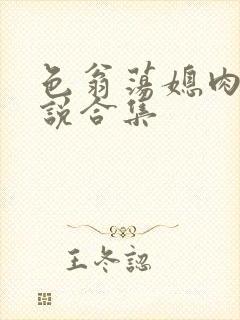 色翁荡媳肉
説合集
王冬認